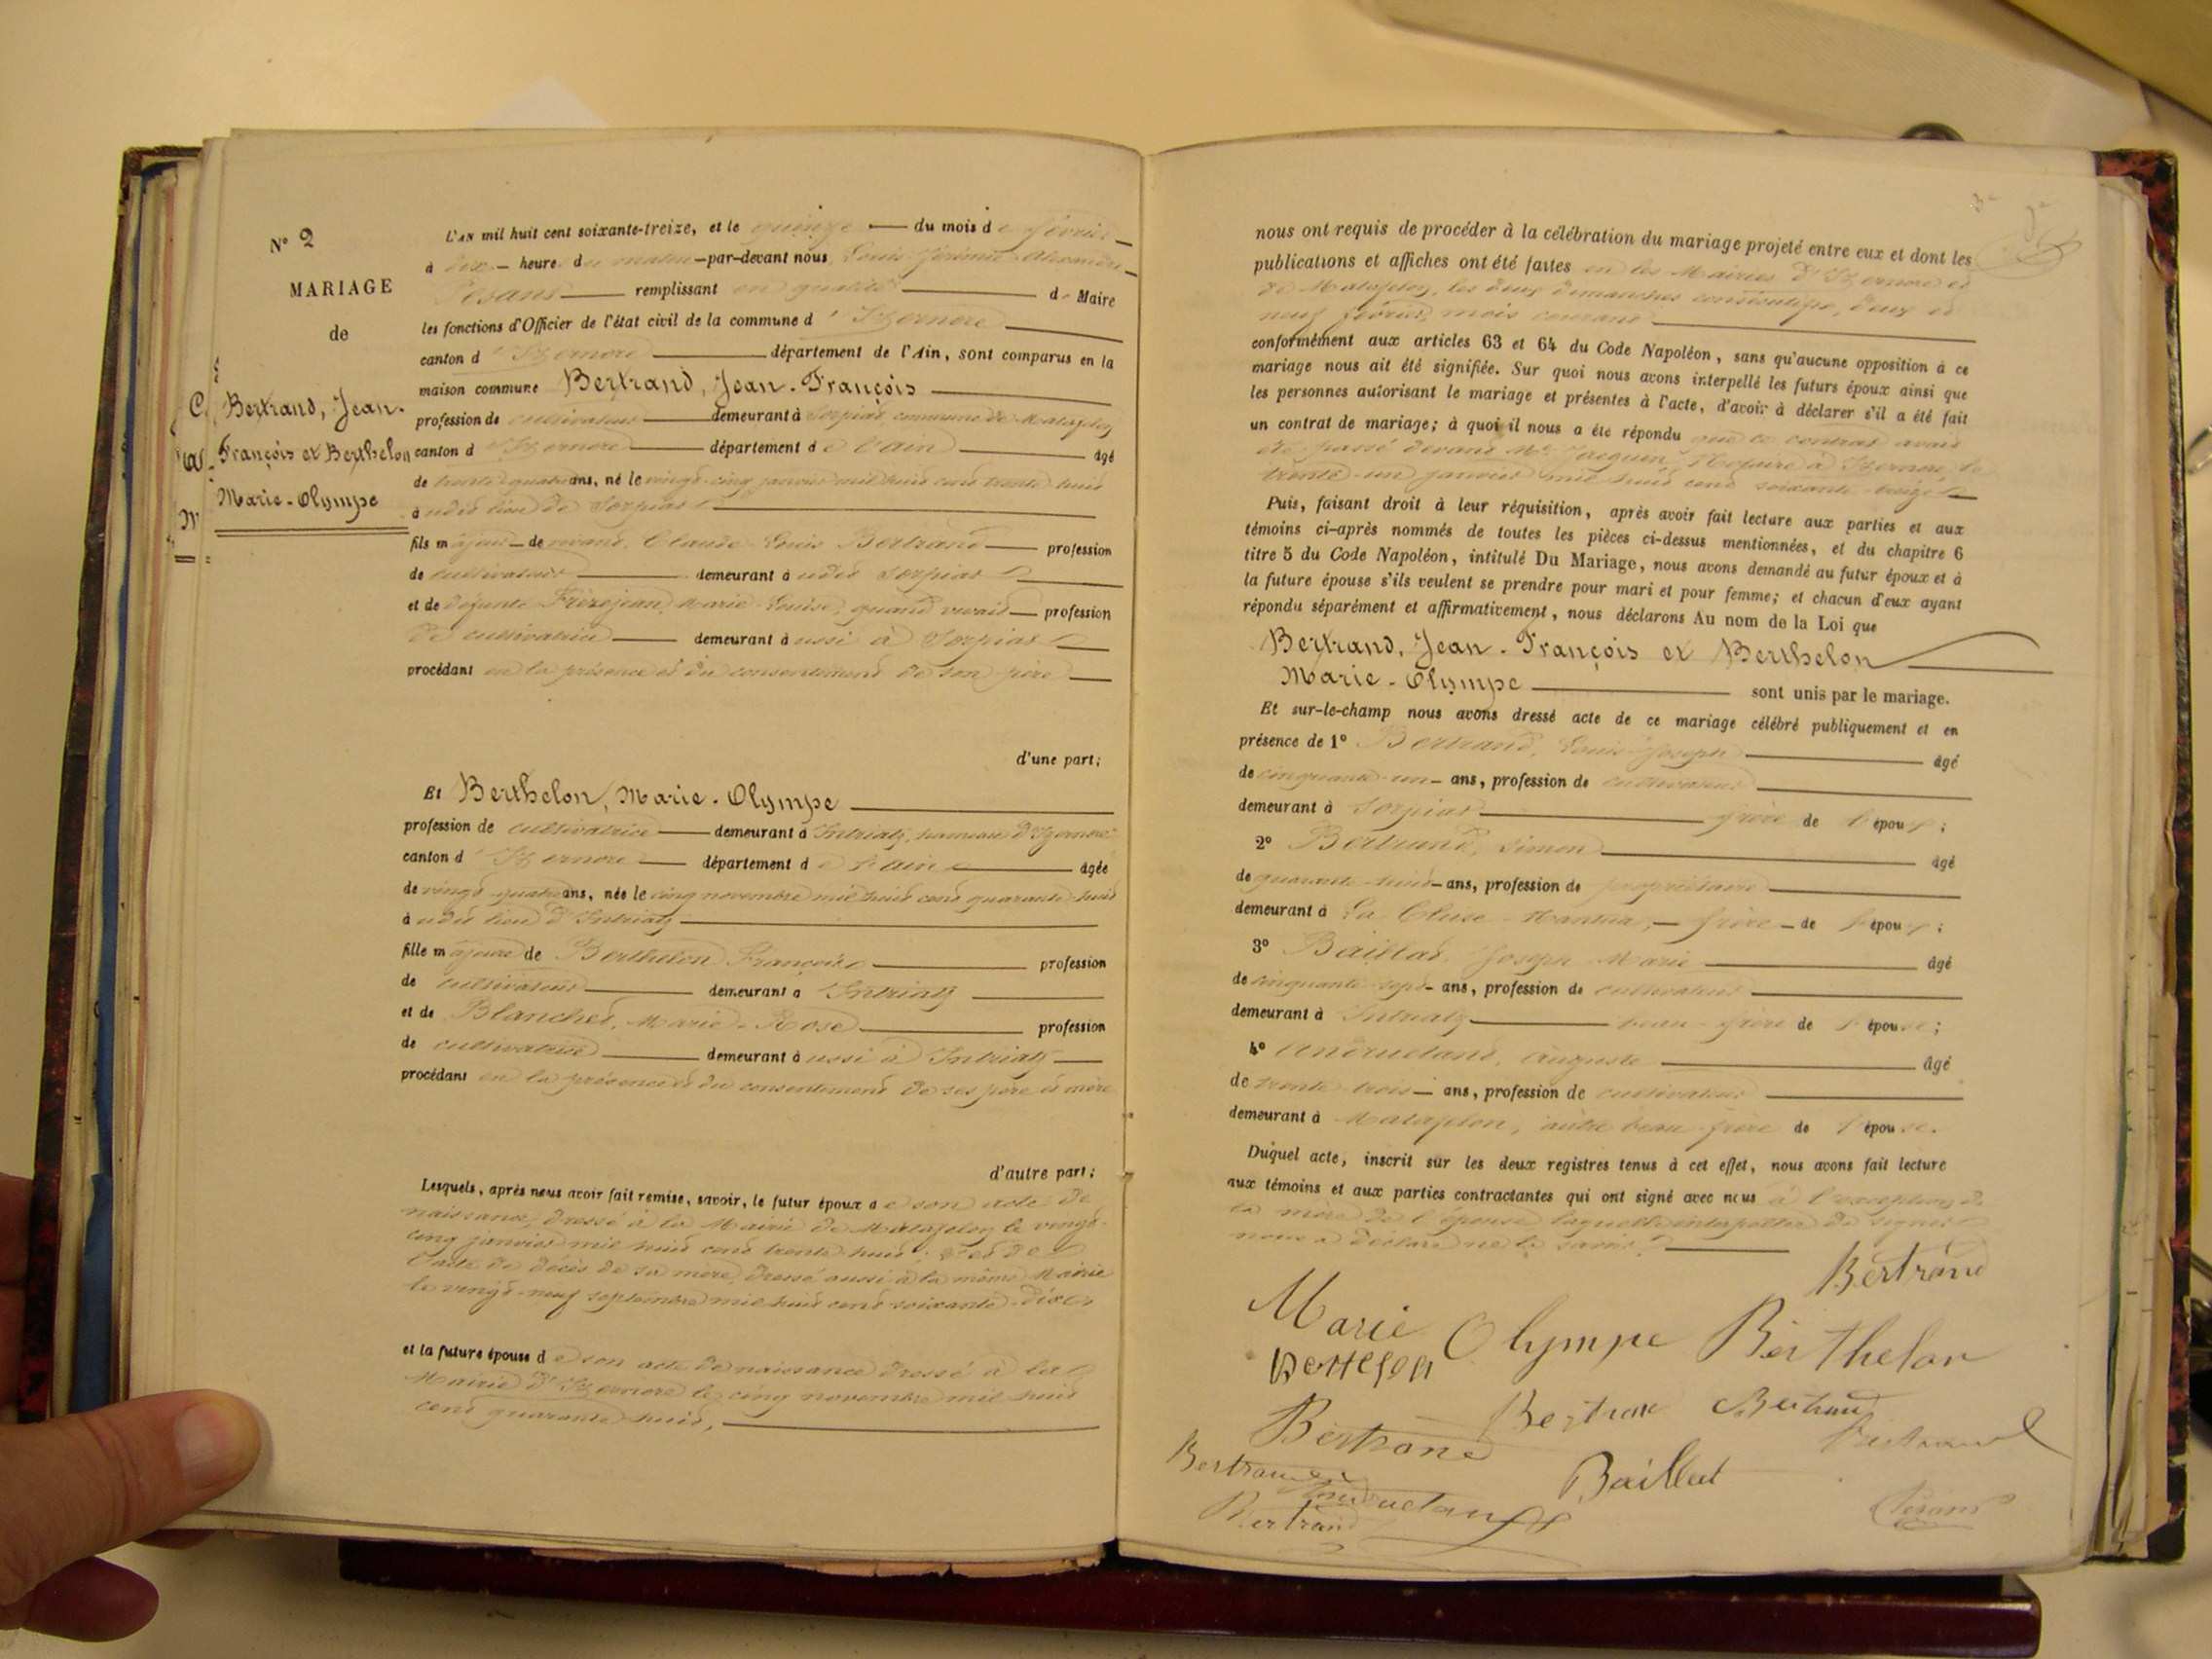 N° 2
MARIAGE
de
Bertrand, Jean-
François et Berthelon
Marie-Olympe
L'AN mil huit cent soixante-treize, et le quinze du mois de février
à dix heures du matin par-devant nous Louis Jérémie Alexandre
Pesant remplissant en qualité de Maire
les fonctions d'Officier de l'état civil de la commune d'Izernore
canton d'Izernore département de l'Ain, sont comparus en la
maison commune Bertrand, Jean-François
profession de cultivateur demeurant à Sorpiat, commune de Matafelon
canton d'Izernore département de l'Ain âgé
de trente quatre ans, né le vingt-cinq janvier mil huit cent trente huit
à udit lieu de Sorpiat
fils majeur de vivant Claude Louis Bertrand profession
de cultivateur demeurant à udit Sorpiat
et de défunte Frèrejean, Marie-Louise, quand vivait profession
de cultivatrice demeurant aussi à Sorpiat
procédant en la présence et du consentement de son père
d'une part;
Et Berthelon, Marie-Olympe
profession de cultivatrice demeurant à Intriatz, hameau d'Izernore
canton d'Izernore département de l'Ain âgée
de vingt-quatre ans, née le cinq novembre mil huit cent quarante-huit
à udit lieu d'Intriatz
fille majeure de Berthelon François profession
de cultivateur demeurant à Intriatz
et de Blanchet, Marie-Rose profession
de cultivatrice demeurant aussi à Intriatz
procédant en la présence et du consentement de ses père et mère
d'autre part;
Lesquels, après nous avoir fait remise, savoir, le futur époux de son acte de
naissance, dressé à la Mairie de Matafelon le vingt-
cinq janvier mil huit cent trente huit; et de
l'acte de décès de sa mère, dressé aussi à la même Mairie
le vingt-neuf septembre mil huit cent soixante-dix
et la future épouse de son acte de naissance dressé à la
Mairie d'Izernore le cinq novembre mil huit
cent quarante huit,
nous ont requis de procéder à la célébration du mariage projeté entre eux et dont les
publications et affiches ont été faites en les Mairies d'Izernore et
de Matafelon, les deux dimanches consécutifs, deux et
neuf février, mois courant
conformément aux articles 63 et 64 du Code Napoléon, sans qu'aucune opposition à ce
mariage nous ait été signifiée. Sur quoi nous avons interpellé les futurs époux ainsi que
les personnes autorisant le mariage et présentes à l'acte, d'avoir à déclarer s'il a été fait
un contrat de mariage; à quoi il nous a été répondu que ce contrat avait
été passé devant Me Notaire à Izernore le
trente-un janvier mil huit cent soixante-treize
Puis, faisant droit à leur réquisition, après avoir fait lecture aux parties et aux
témoins ci-après nommés de toutes les pièces ci-dessus mentionnées, et du chapitre 6
titre 5 du Code Napoléon, intitulé Du Mariage, nous avons demandé au futur époux et à
la future épouse s'ils veulent se prendre pour mari et pour femme; et chacun d'eux ayant
répondu séparément et affirmativement, nous déclarons Au nom de la Loi que
Bertrand, Jean-François et Berthelon
Marie-Olympe sont unis par le mariage.
Et sur-le-champ nous avons dressé acte de ce mariage célébré publiquement et en
présence de 1° Bertrand, Louis-Joseph âgé
de cinquante-un ans, profession de cultivateur
demeurant à Sorpiat frère de l'époux;
2° Bertrand, Simon âgé
de quarante-huit ans, profession de propriétaire
demeurant à La Cluse-Nantua, frère de l'époux;
3° Baillat, Joseph-Marie âgé
de cinquante-sept ans, profession de cultivateur
demeurant à Intriatz beau-frère de l'épouse;
4° Andruetand, Auguste âgé
de trente-trois ans, profession de cultivateur
demeurant à Matafelon, autre beau-frère de l'épouse.
Duquel acte, inscrit sur les deux registres tenus à cet effet, nous avons fait lecture
aux témoins et aux parties contractantes qui ont signé avec nous à l'exception de
la mère de l'épouse laquelle interpellée de signer
nous a déclaré ne le savoir.
Bertrand
Marie Olympe Berthelon
Bertelon
Bertrand Bertrand Bertrand
Bertrand Baillat
Bertrand